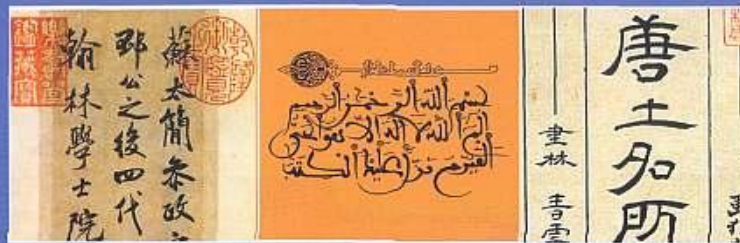 蘇太簡參政
邳公之後四代
翰林學士院
بسم الله الرحمن الرحيم
الم الله لا اله الا هو الحي
القيوم نزل عليك الكتب
唐土名所
書林 青雲